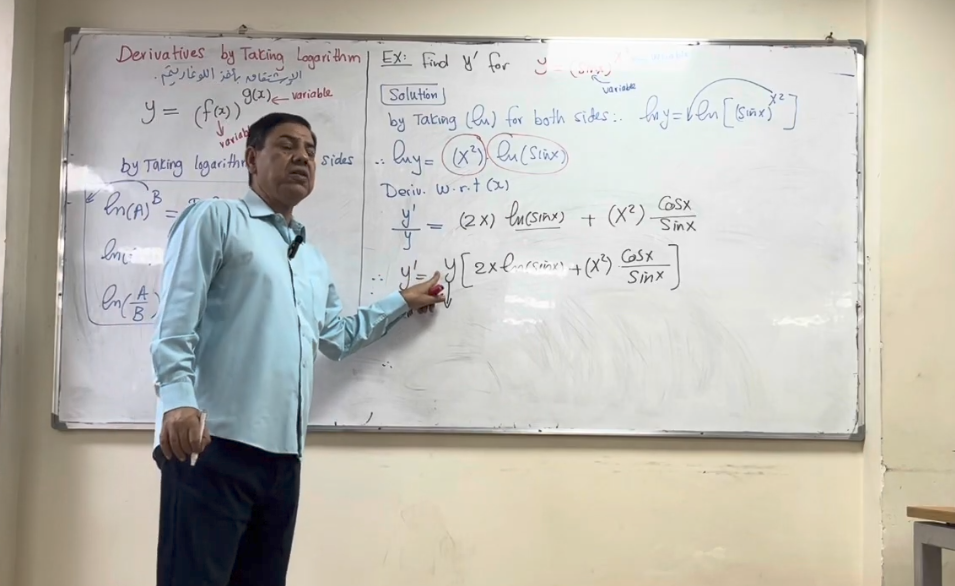 Derivatives by Taking Logarithm
الإشتقاق بأخذ اللوغاريتم.
y = (f(x))^g(x) ← variable
by Taking sides
ln(A)^B =
ln(A/B)
EX: Find y' for y = (sinx)
variable
Solution
by Taking (ln) for both sides ∴ lny = ln[(sinx)^x²]
∴ lny = (x²) · ln(sinx)
Deriv. w.r.t (x)
y'/y = (2x) ln(sinx) + (x²) Cosx/Sinx
∴ y' = y [2x ln(sinx) + (x²) Cosx/Sinx]
∴